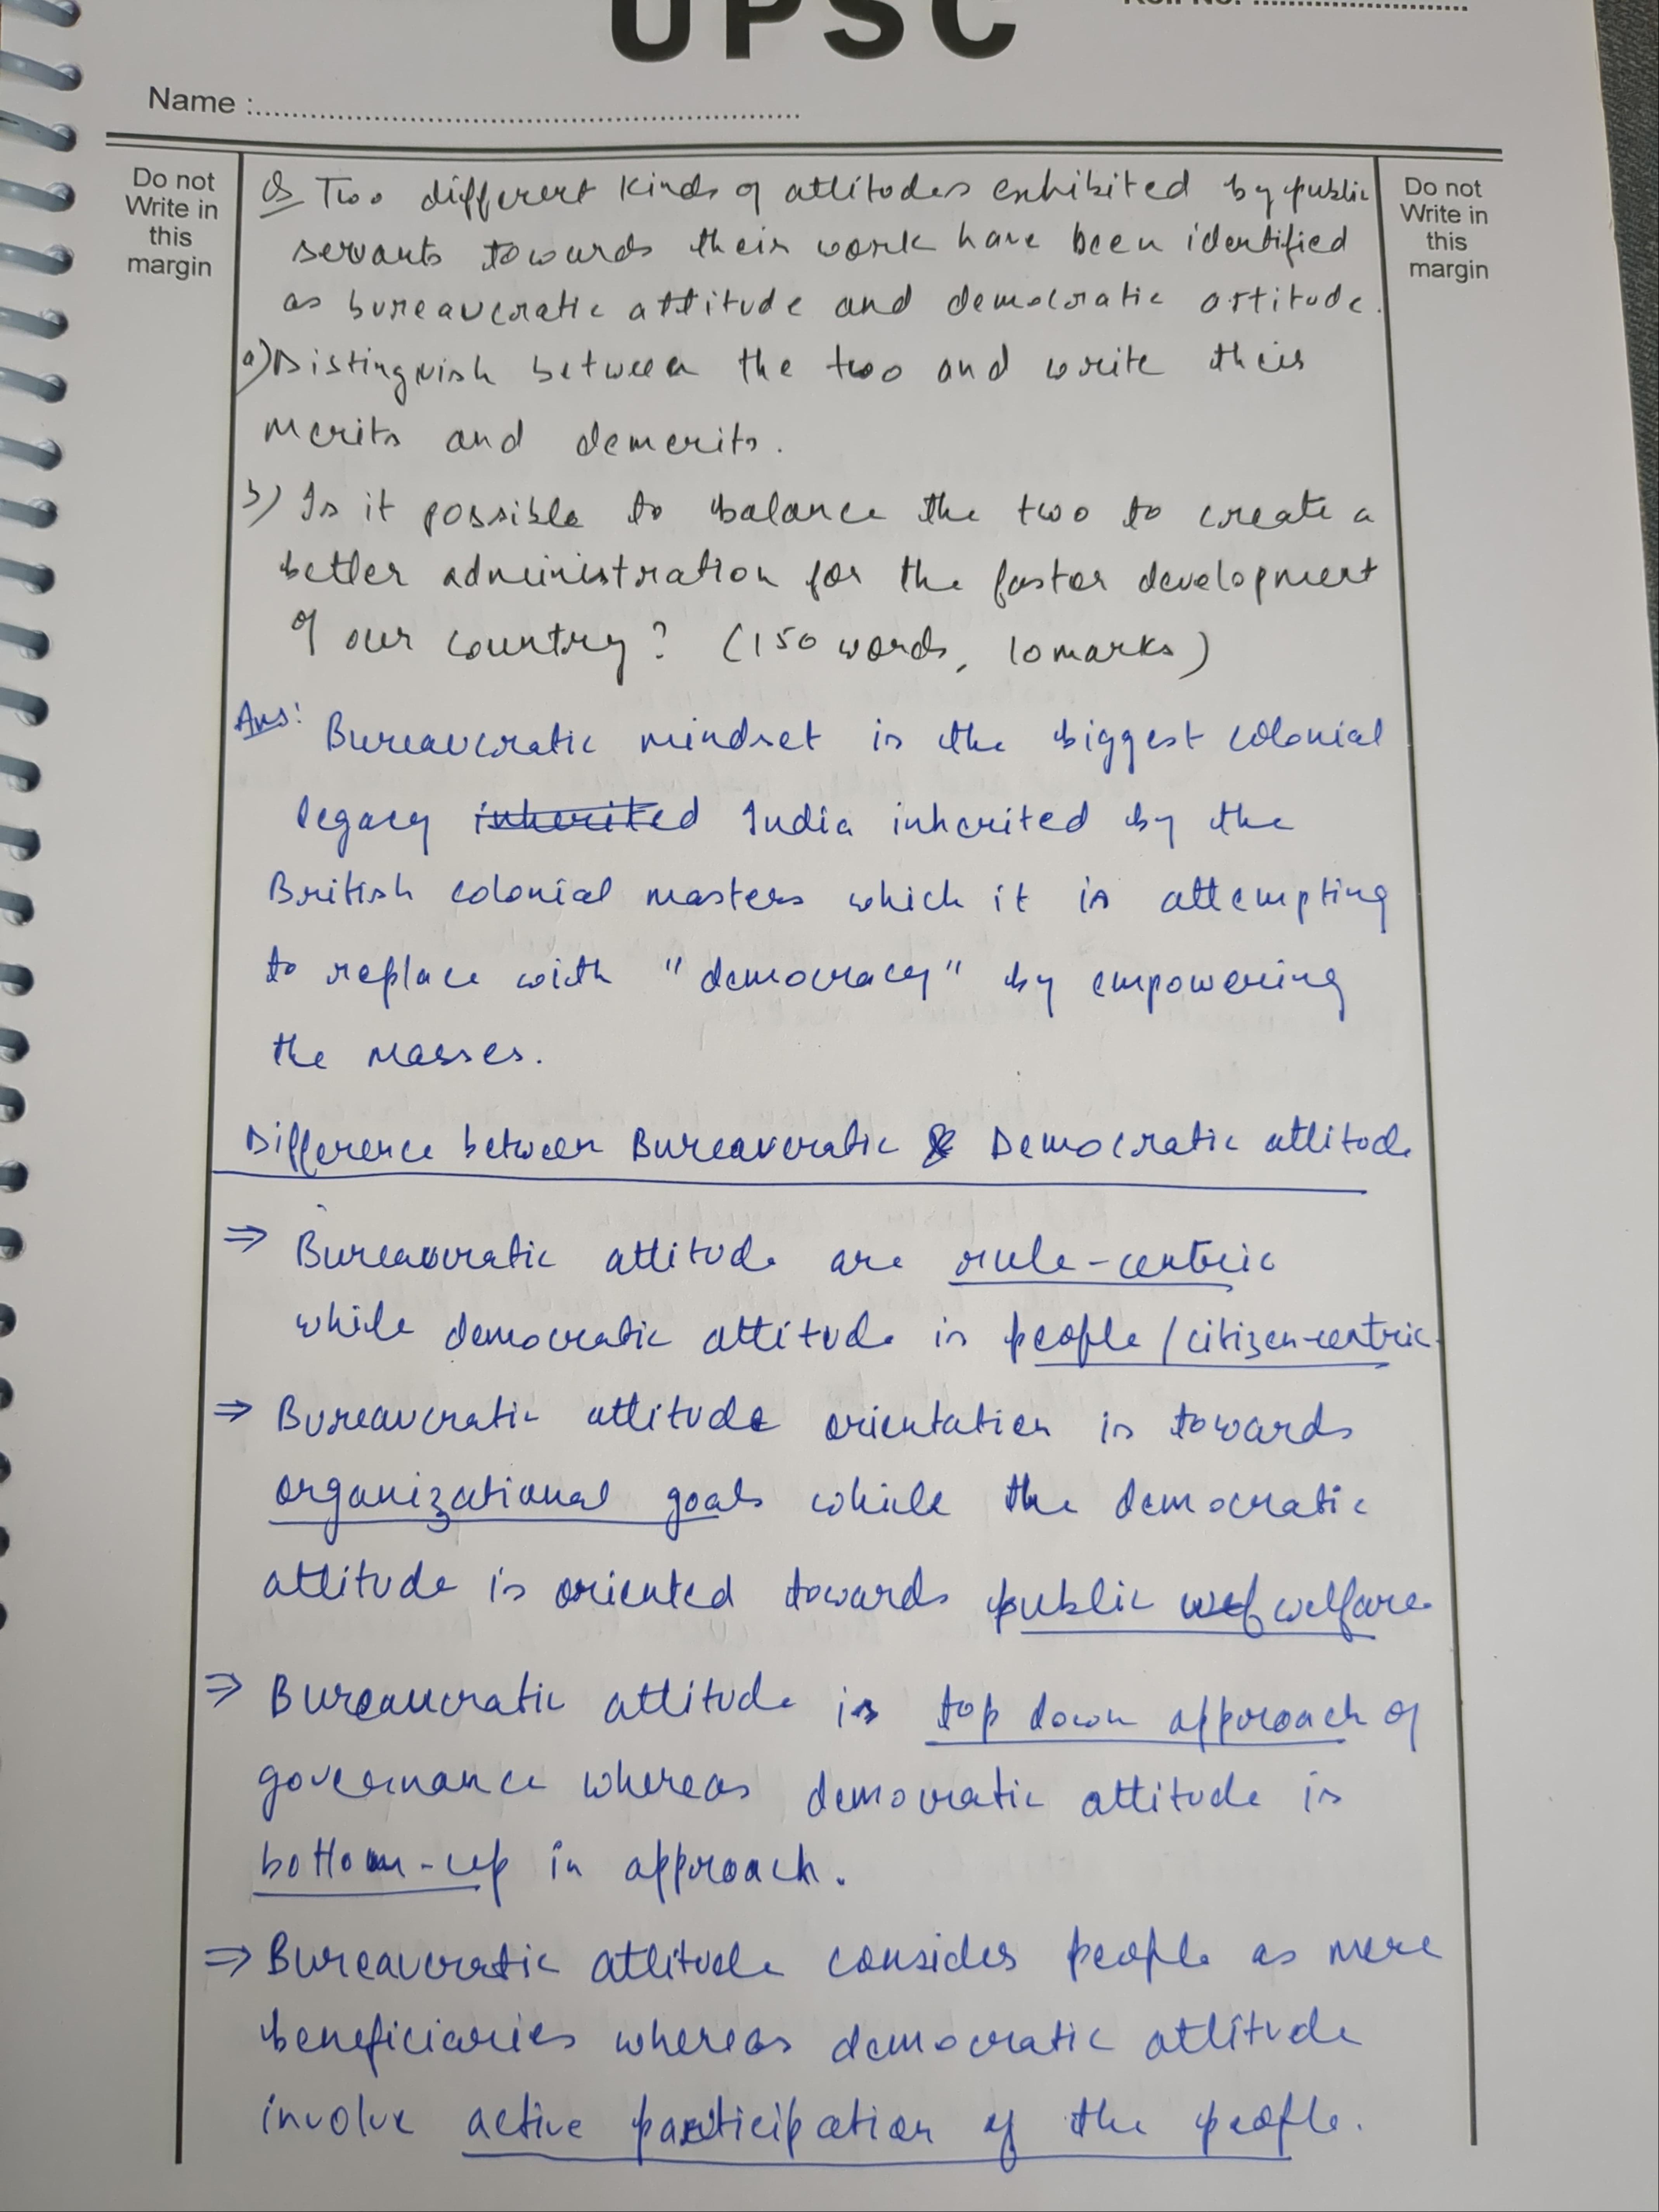 Roll No. ..............................
UPSC
Name :............................................................
Do not
Write in
this
margin
Q Two different kinds of attitudes exhibited by public
servants towards their work have been identified
as bureaucratic attitude and democratic attitude.
a) Distinguish between the two and write their
merits and demerits.
b) Is it possible to balance the two to create a
better administration for the faster development
of our country? (150 words, 10 marks)
Do not
Write in
this
margin
Ans: Bureaucratic mindset is the biggest colonial
legacy inherited India inherited by the
British colonial masters which it is attempting
to replace with "democracy" by empowering
the masses.
Difference between Bureaucratic & Democratic attitude
⇒ Bureaucratic attitude are rule-centric
while democratic attitude is people / citizen-centric.
⇒ Bureaucratic attitude orientation is towards
organizational goals while the democratic
attitude is oriented towards public wef welfare.
⇒ Bureaucratic attitude is top down approach of
governance whereas democratic attitude is
bottom-up in approach.
⇒ Bureaucratic attitude consider people as mere
beneficiaries whereas democratic attitude
involve active participation of the people.